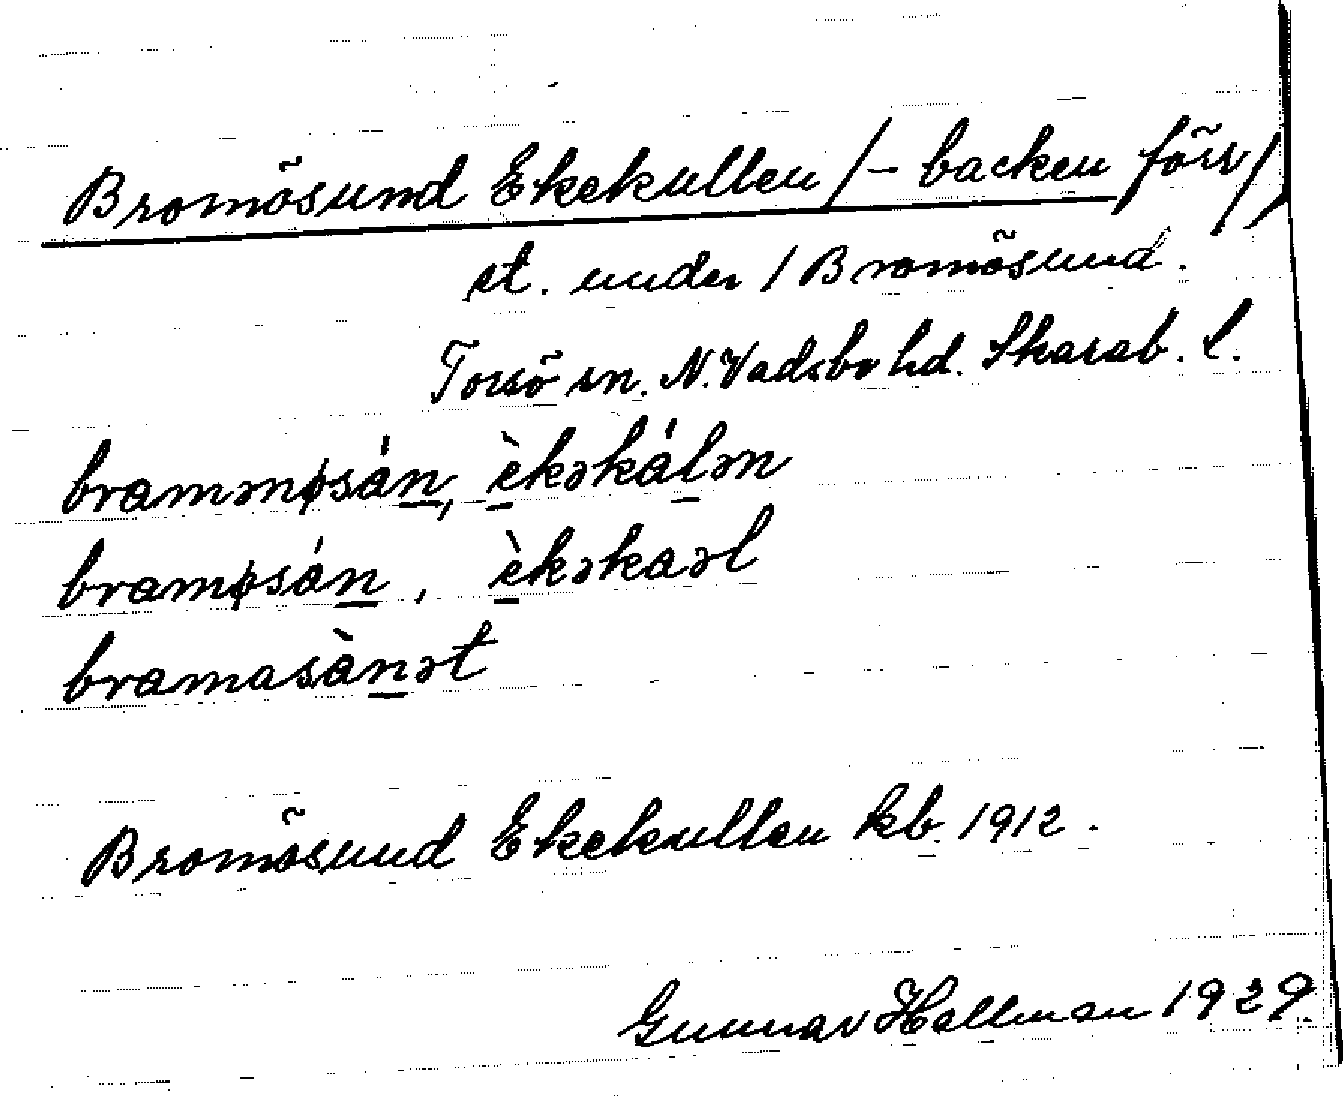 Bromösund Ekekullen /- backen förr/
st. under 1 Bromösund.
Torsö sn. N. Vadsbo hd. Skarab. l.
bramənøsán, èkəkálən
bramøsán, èkəkaəl
bramasànət
Bromösund Ekekullen kb. 1912.
Gunnar Hallman 1929.